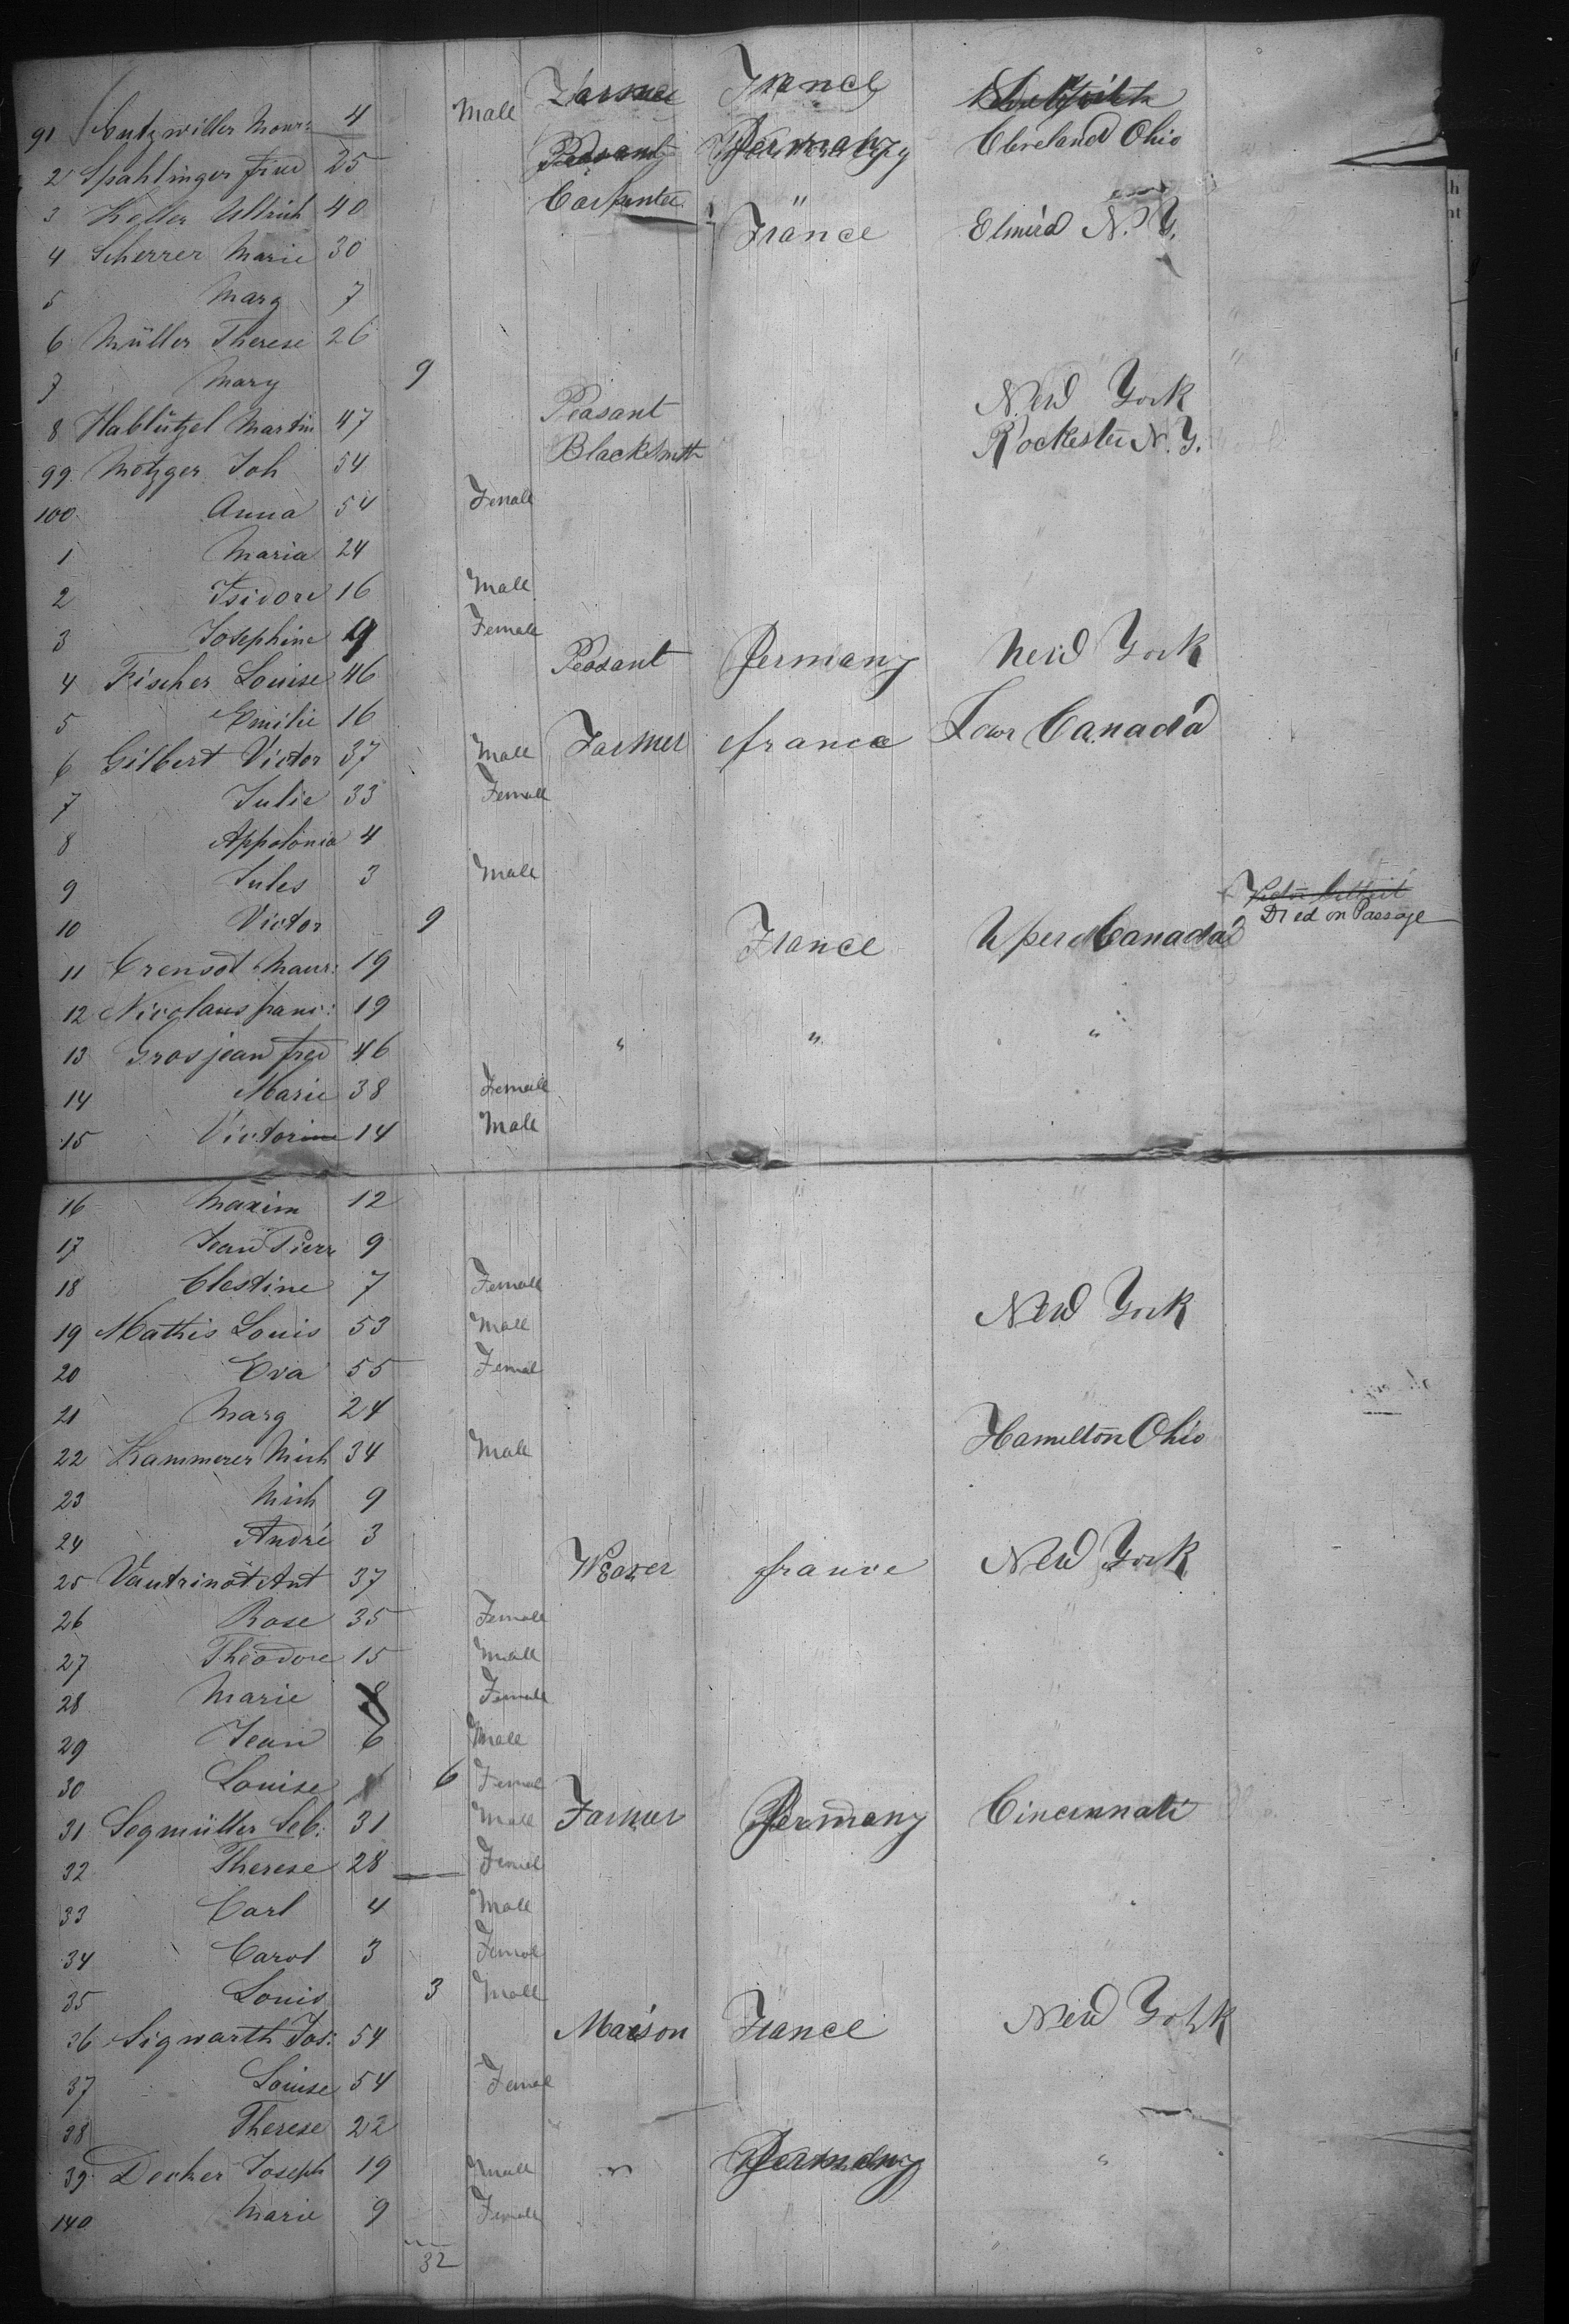 91 Gutzwiller Maur: 4 Male Farmer France
2 Spahlinger fried 25 Peasant Germany Cleveland Ohio
3 Keller Ullrich 40 Carpenter "
4 Scherrer Marie 30 France Elmira N. Y.
5 Marg 7
6 Müller Therese 26
7 Mary 9
8 Hablützel Martin 47 Peasant New York
99 Motzger Joh 54 Blacksmith Rochester N. Y.
100 Anna 54 Female
1 Maria 24
2 Isidore 16 Male
3 Josephine 9 Female
4 Fischer Louise 46 Peasant Germany New York
5 Emilie 16
6 Gilbert Victor 37 Male Farmer france Lowr Canada
7 Julie 33 Female
8 Appolonia 4
9 Jules 3 Male
10 Victor 9 Died on Passage
11 Crensot Maur: 19 France Uper Canada
12 Nicolaus franc: 19
13 Grosjean fred 46 " " "
14 Marie 38 Female
15 Victorine 14 Male
16 Maxim 12
17 Jean Pierr 9
18 Clestine 7 Female
19 Mathis Louis 53 Male New York
20 Eva 55 Femal
21 Marg 24
22 Kammerer Mich 34 Male Hamilton Ohio
23 Mich 9
24 André 3
25 Vautrinot Ant 37 Weaver france New York
26 Rose 35 Female
27 Theodore 15 Male
28 Marie 8 Female
29 Jean 6 Male
30 Louise 6 Femal
31 Segmüller Seb: 31 Male Farmer Germany Cincinnati
32 Therese 28 Femel
33 Carl 4 Male
34 Carol 3 Femal
35 Louis 3 Male
36 Sigwarth Jos: 54 Maison France New York
37 Louise 54 Femal
38 Therese 22
39 Decker Joseph 19 Male " Germany "
140 Marie 9 Female
32